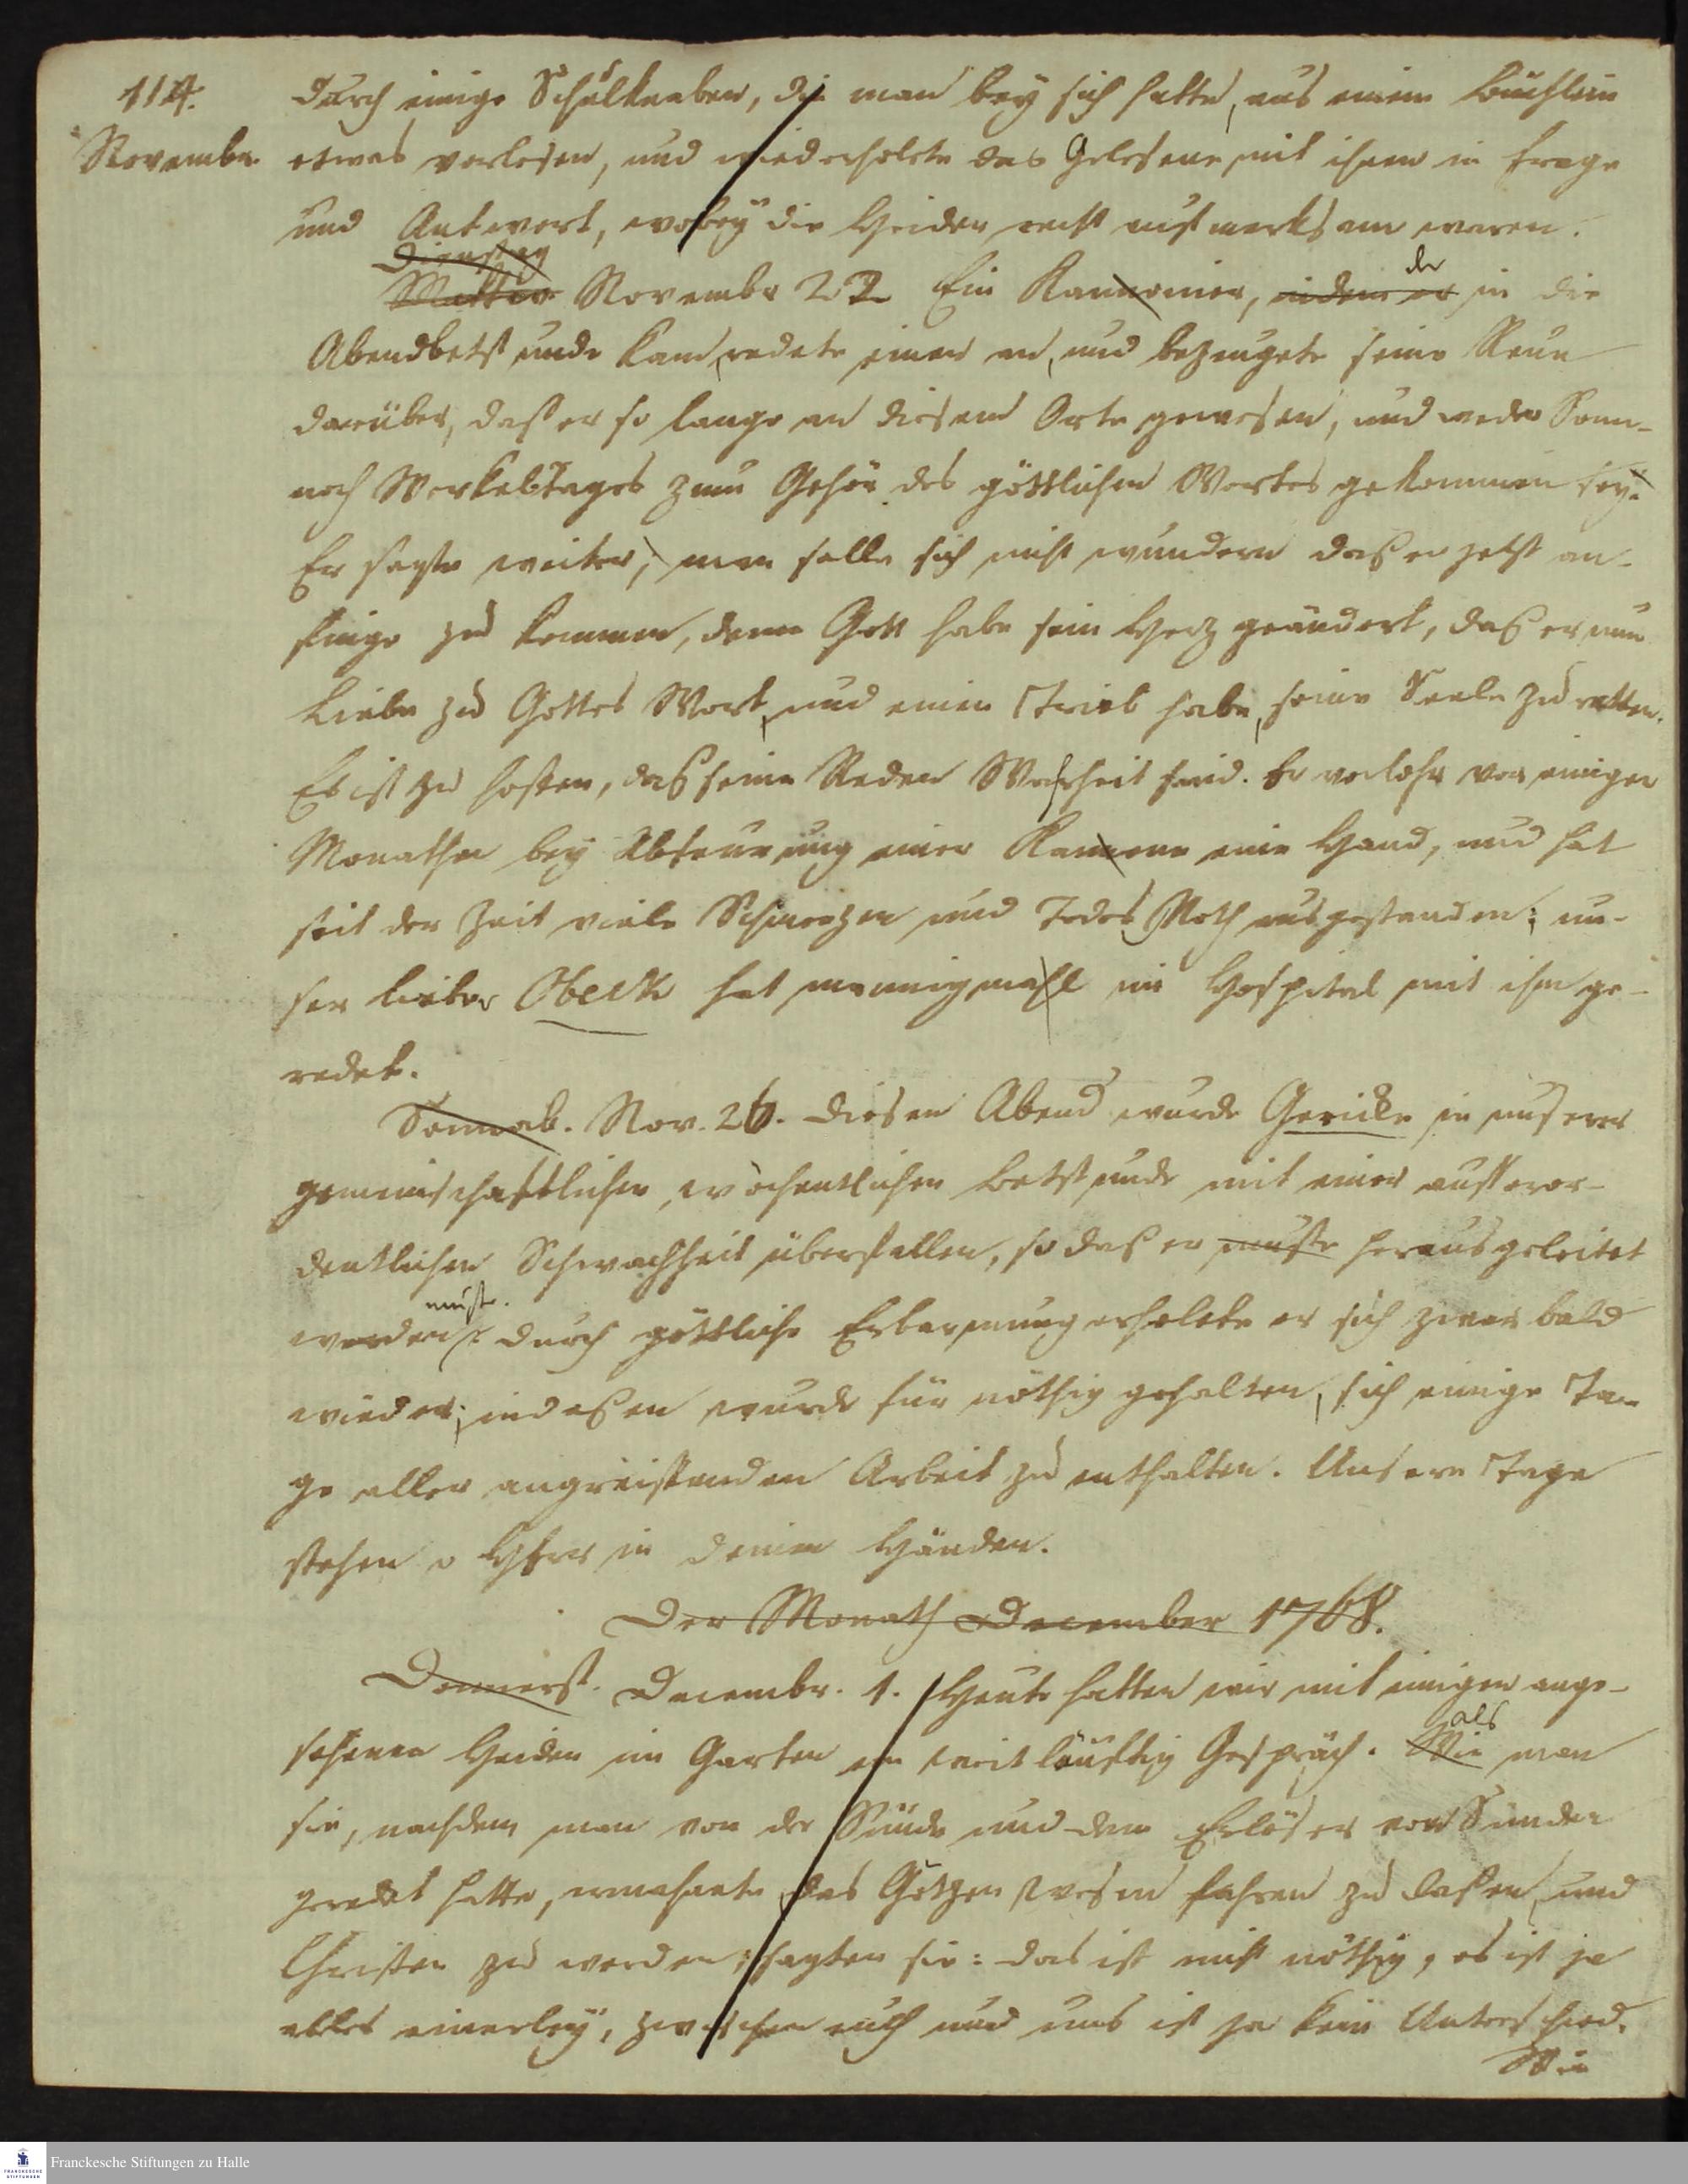 114.
November.
durch einige Schulknaben, die man bey sich hatte, aus einem Büchlein
etwas vorlesen, und wiederholete das Gelesene mit ihnen in Frage
und Antwort, wobey die Heiden recht aufmerksam waren.
Dienstag
Novembr 22 Ein Kanonier, indem er der in die
Abendbetstunde kam, redete einen an, und bezeugete seine Reue
darüber, daß er so lange an diesem Orte gewesen, und weder Sonn-
noch Werkeltages zum Gehör des göttlichen Wortes gekommen sey.
Er sagte weiter, man solle sich nicht wundern daß er jetzt an-
finge zu kommen, denn Gott habe sein Herz geändert, daß er nun
Liebe zu Gottes Wort, und einen Trieb habe, seine Seele zu retten.
Es ist zu hoffen, daß seine Reden Wahrheit sind. Er verlohr vor einigen
Monathen bey Abfeurung einer Kanone eine Hand, und hat
seit der Zeit viele Schmerzen und Todes Noth ausgestanden; un-
ser lieber Obeck hat mannigmahl im Hospital mit ihm ge-
redet.
Sonnab. Nov. 26. Diesen Abend wurde Gericke in unserer
gemeinschaftlichen, wöchentlichen Betstunde mit einer ausseror-
dentlichen Schwachheit überfallen, so daß er muste herausgeleitet
werden muste. Durch göttliche Erbarmung erholete er sich zwar bald
wieder; indeßen wurde für nöthig gehalten, sich einige Ta-
ge aller angreiffenden Arbeit zu enthalten. Unsere Tage
stehen o HErr in deinen Händen.
Der Monath December 1768.
Donnerst. Decembr. 1. Heute hatten wir mit einigen ange-
sehenen Heiden im Garten ein weitläuftig Gespräch. Wie als man
sie, nachdem man von der Sünde und dem Erlöser von Sünden
geredet hatte, ermahnete, das Götzen Wesen fahren zu laßen, und
Christen zu werden; sagten sie: das ist nicht nöthig, es ist ja
alles einerley, zwischen euch und uns ist ja kein Unterschied.
Wie
Franckesche Stiftungen zu Halle